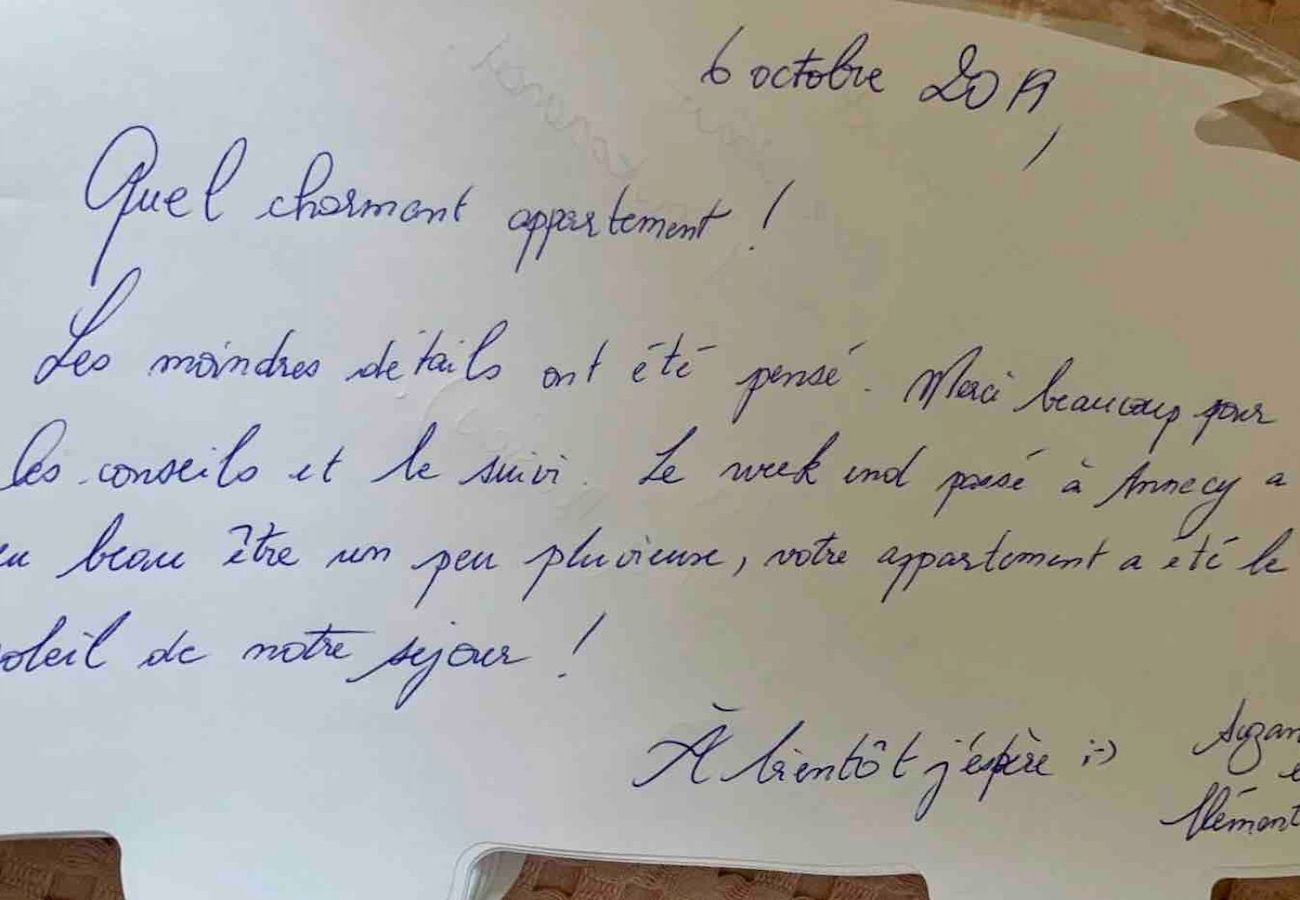 6 octobre 2019,
Quel charmant appartement !
Les moindres détails ont été pensé. Merci beaucoup pour
les conseils et le suivi. Le week end passé à Annecy a
eu beau être un peu pluvieux, votre appartement a été le
soleil de notre séjour !
À bientôt j'éspère ;-)
Suzan
e
Clément